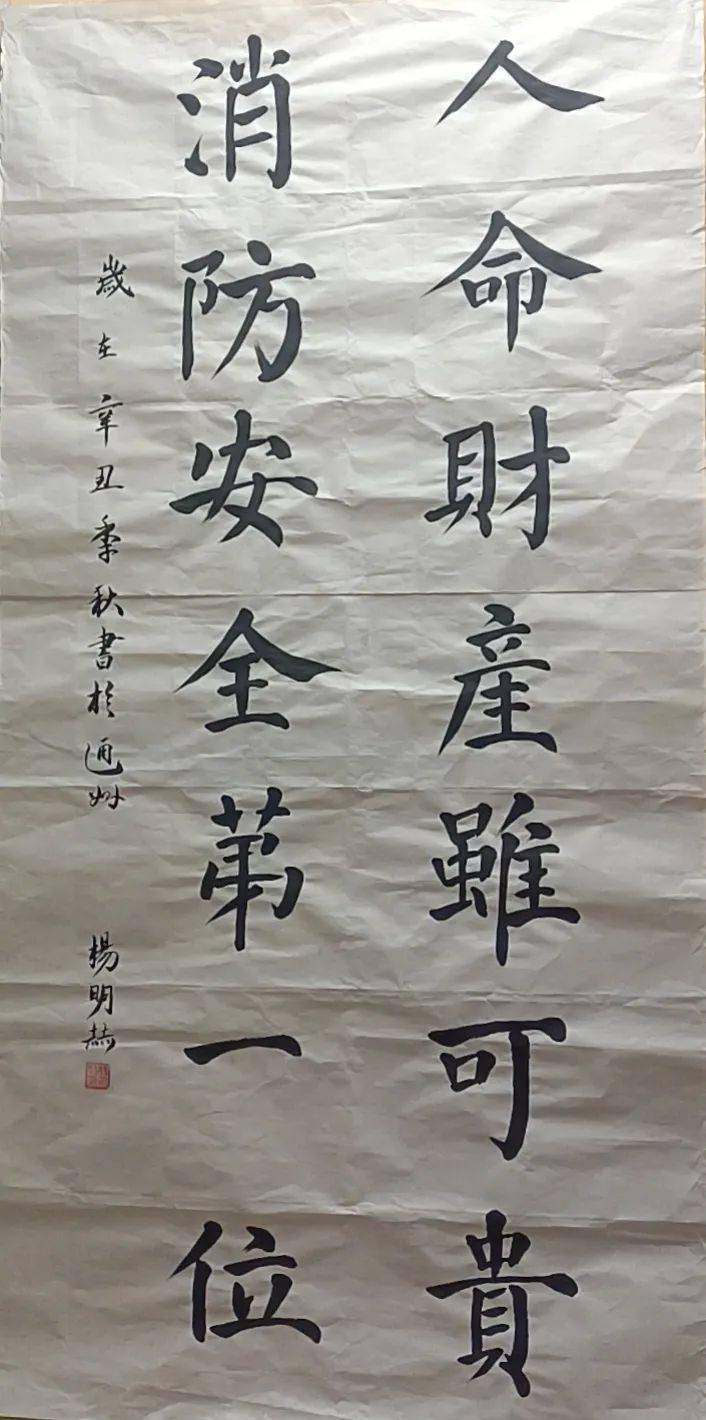 人命財産雖可貴
消防安全苐一位
歲在辛丑季秋書於通州
楊明赫